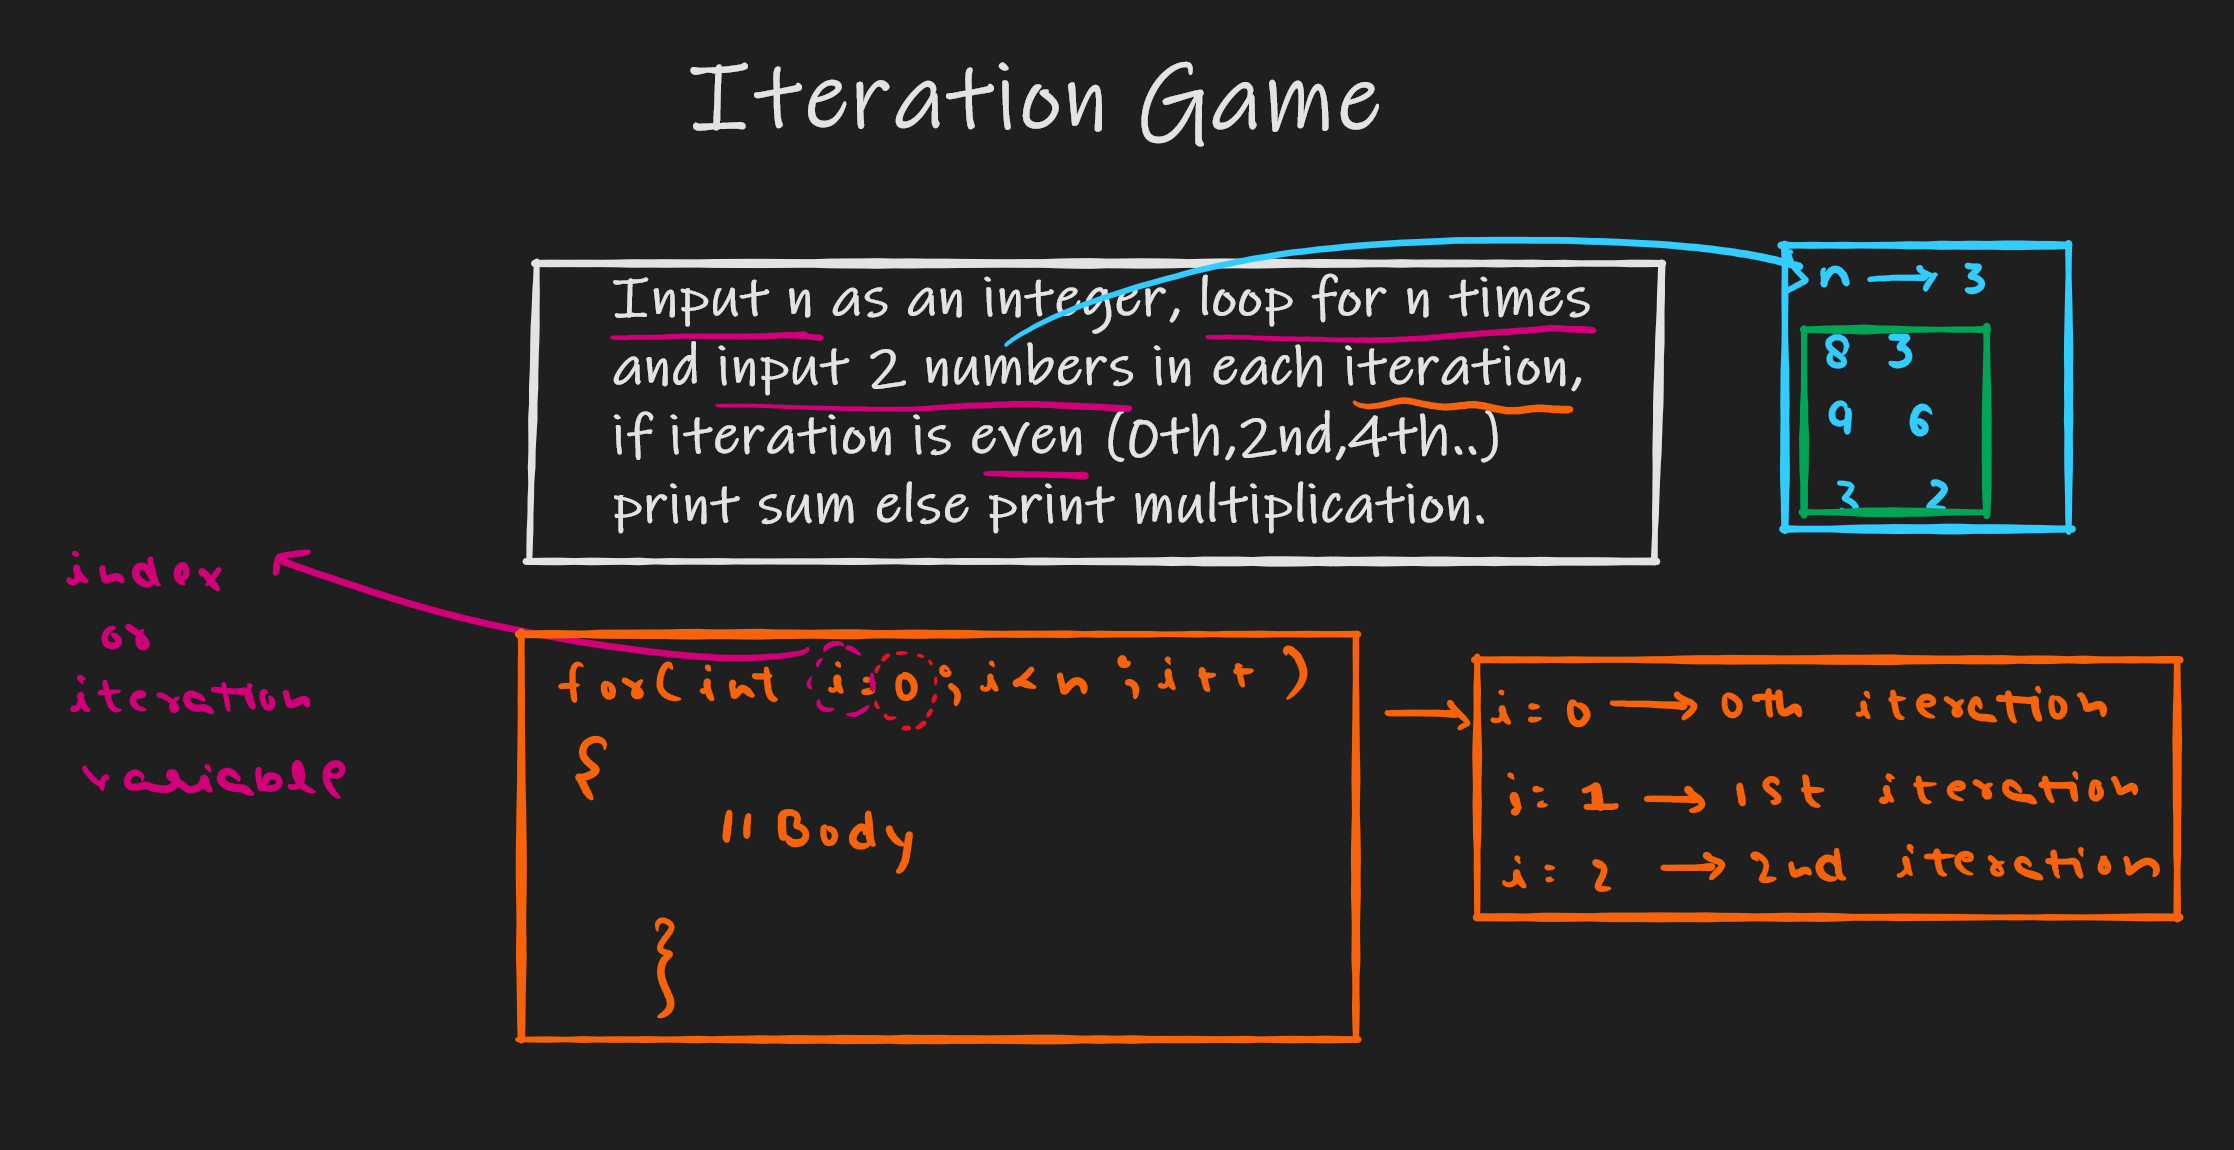 Iteration Game
Input n as an integer, loop for n times
and input 2 numbers in each iteration,
if iteration is even (0th,2nd,4th..)
print sum else print multiplication.
n → 3
8 3
9 6
3 2
index
or
iteration
variable
for(int i=0;i<n;i++)
{
//Body
}
i=0 → 0th iteration
i=1 → 1st iteration
i=2 → 2nd iteration